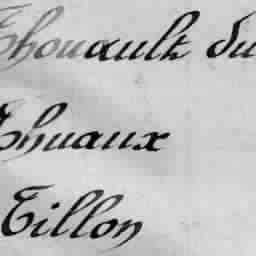 Thouault du
Thuaux
Tillon